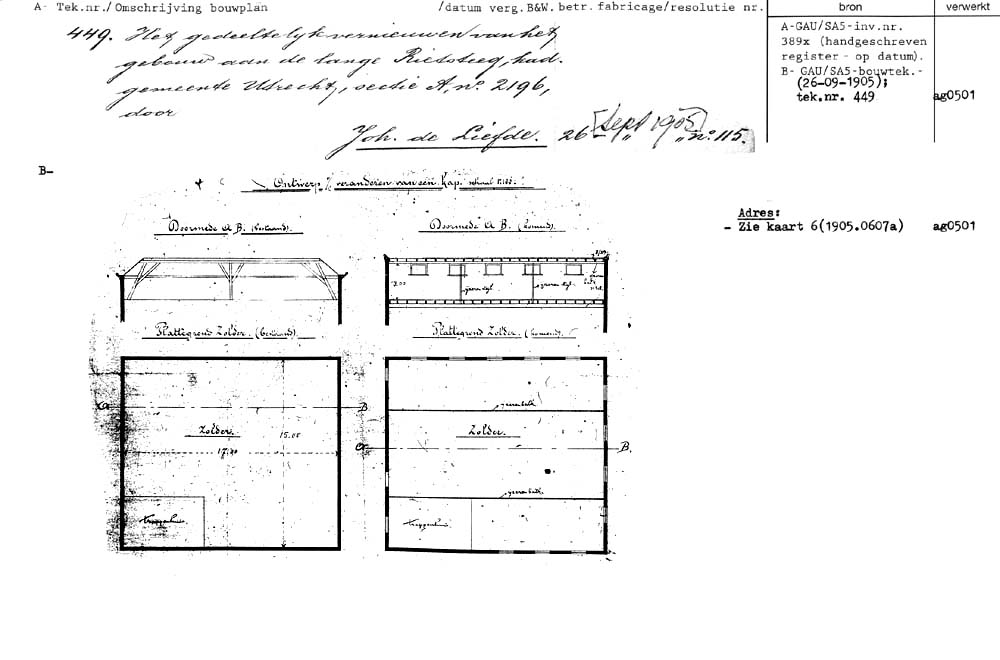 A- Tek.nr./ Omschrijving bouwplan /datum verg.B&W. betr. fabricage/resolutie nr. bron verwerkt
449. Het gedeeltelijk vernieuwen van het
gebouw aan de lange Rietsteeg, kad.
gemeente Utrecht, sectie A, no. 2196,
door
Joh. de Liefde. 26 Sept 1905 no. 115.
A-GAU/SA5-inv.nr.
389x (handgeschreven
register - op datum).
B- GAU/SA5-bouwtek.-
(26-09-1905);
tek.nr. 449 ag0501
B-
Ontwerp v/ veranderen van een kap. schaal 1:100.
Adres:
- Zie kaart 6(1905.0607a) ag0501
Doorsnede A B. (bestaand). Doorsnede A B. (komend).
Plattegrond Zolder. (bestaand). Plattegrond Zolder. (komend).
B
Zolder. 15.00
17.20
Zolder.
B.